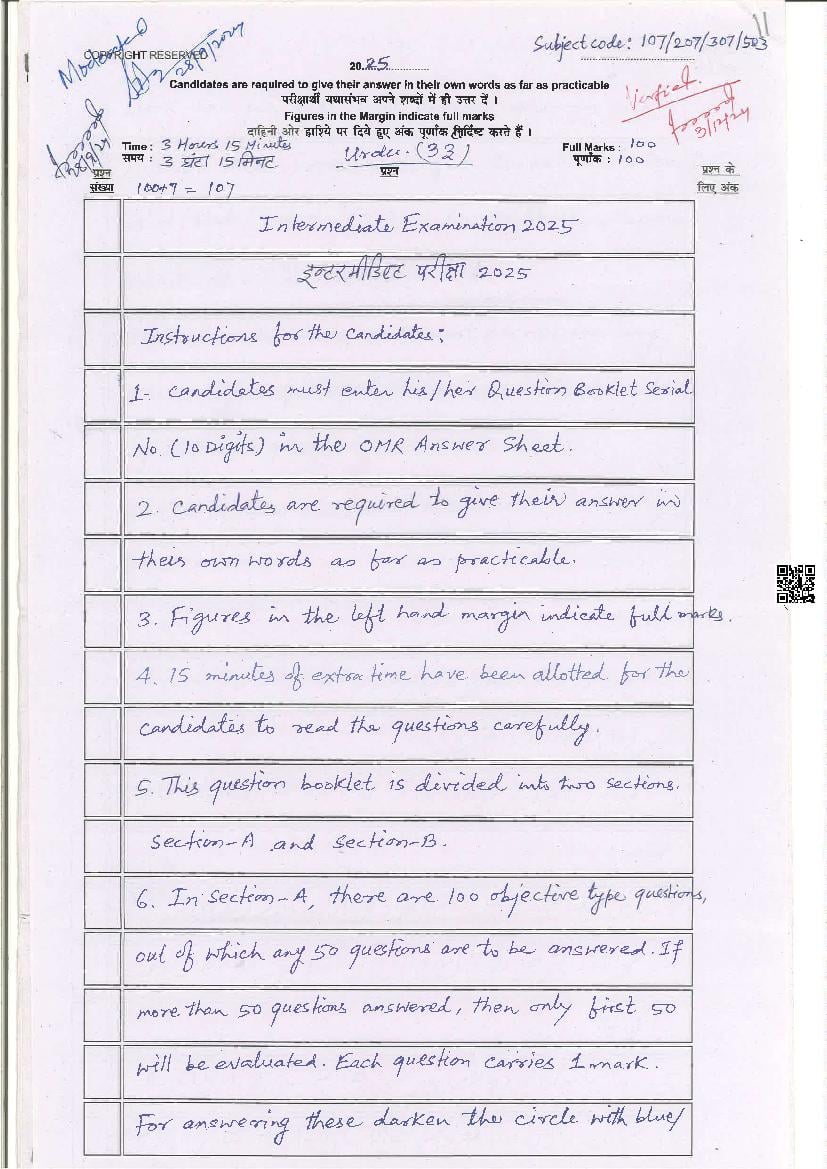 11
COPYRIGHT RESERVED
Moderated
28/9/2024
Subject code: 107/207/307/503
2025
Candidates are required to give their answer in their own words as far as practicable
परीक्षार्थी यथासंभव अपने शब्दों में ही उत्तर दें ।
Figures in the Margin indicate full marks
दाहिनी ओर हाशिये पर दिये हुए अंक पूर्णांक निर्दिष्ट करते हैं ।
Verified
3/12/24
Time: 3 Hours 15 Minutes
समय : 3 घंटा 15 मिनट
Urdu. (33)
Full Marks : 100
पूर्णांक : 100
प्रश्न संख्या
प्रश्न
प्रश्न के लिए अंक
100+7 = 107
Intermediate Examination 2025
इन्टरमीडिएट परीक्षा 2025
Instructions for the Candidates:
1- Candidates must enter his/her Question Booklet Serial
No. (10 Digits) in the OMR Answer Sheet.
2. Candidates are required to give their answer in
their own words as far as practicable.
3. Figures in the left hand margin indicate full marks.
4. 15 minutes of extra time have been allotted for the
candidates to read the questions carefully.
5. This question booklet is divided into two sections.
Section-A and Section-B.
6. In Section-A, there are 100 objective type questions,
out of which any 50 questions are to be answered. If
more than 50 questions answered, then only first 50
will be evaluated. Each question carries 1 mark.
For answering these darken the circle with blue/